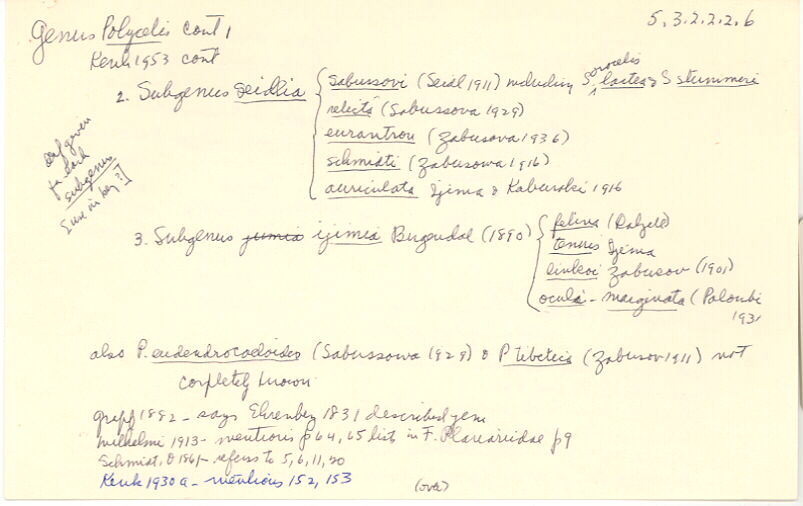 5.3.2.2.2.6
Genus Polycelis cont,
Kenk 1953 cont
2. Subgenus Seidlia
sabussovi (Seidl 1911) including Sorocelis lactea & S stummeri
relicta (Sabussowa 1929)
eurantron (Zabusova 1936)
schmidti (Zabusowa 1916)
auriculata Ijima & Kaburaki 1916
Def given
for each
subgenus
[use in key?]
3. Subgenus jumia ijimia Bergendal (1890)
felina (Dalyell)
tenuis Ijima
linkoi Zabusov (1901)
oculi-marginata (Palombi
1931
also P. eudendrocoeloides (Sabussowa 1929) & P tibetica (Zabusov 1911) not
completely known
graff 1882 - says Ehrenberg 1831 described gen
Wilhelmi 1913 - mentions p 64, 65 lists in F. Planariidae p9
Schmidt, O 1861 - refers to 5, 6, 11, 20
Kenk 1930a - mentions 152, 153
(over)